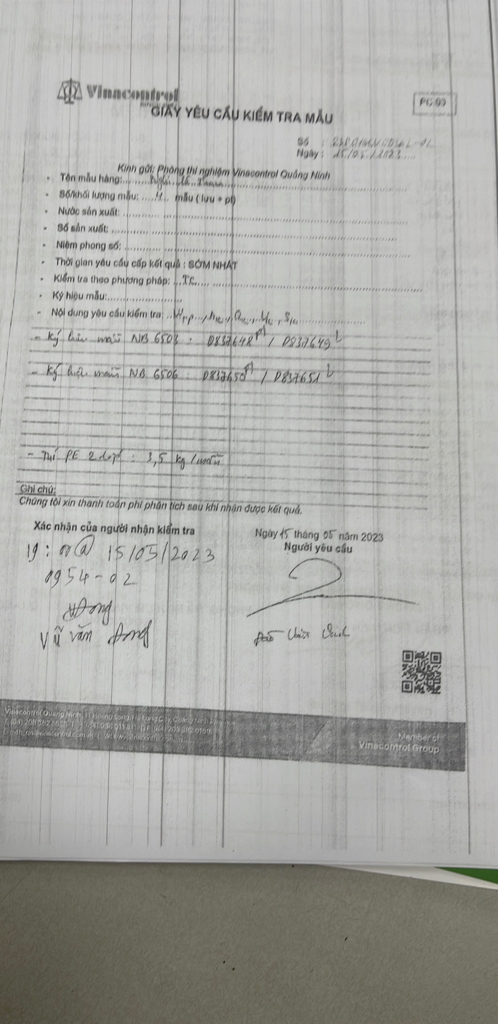 Vinacontrol
PC 03
GIẤY YÊU CẦU KIỂM TRA MẪU
Số
Ngày: 15/05/2023
Kính gửi: Phòng thí nghiệm Vinacontrol Quảng Ninh
- Tên mẫu hàng:
- Số/khối lượng mẫu: 4 mẫu (lưu + pt)
- Nước sản xuất:
- Số sản xuất:
- Niêm phong số:
- Thời gian yêu cầu cấp kết quả: SỚM NHẤT
- Kiểm tra theo phương pháp: TC
- Ký hiệu mẫu:
- Nội dung yêu cầu kiểm tra:
- Ký hiệu mẫu NB 6503: D837648 pt / D837649 L
- Ký hiệu mẫu NB 6506: D837650 pt / D837651 L
- Túi PE 2 lớp: 3,5 kg/mẫu
Ghi chú:
Chúng tôi xin thanh toán phí phân tích sau khi nhận được kết quả.
Xác nhận của người nhận kiểm tra
Ngày 15 tháng 05 năm 2023
Người yêu cầu
15/05/2023
0954-02
Vũ văn
Member of
Vinacontrol Group